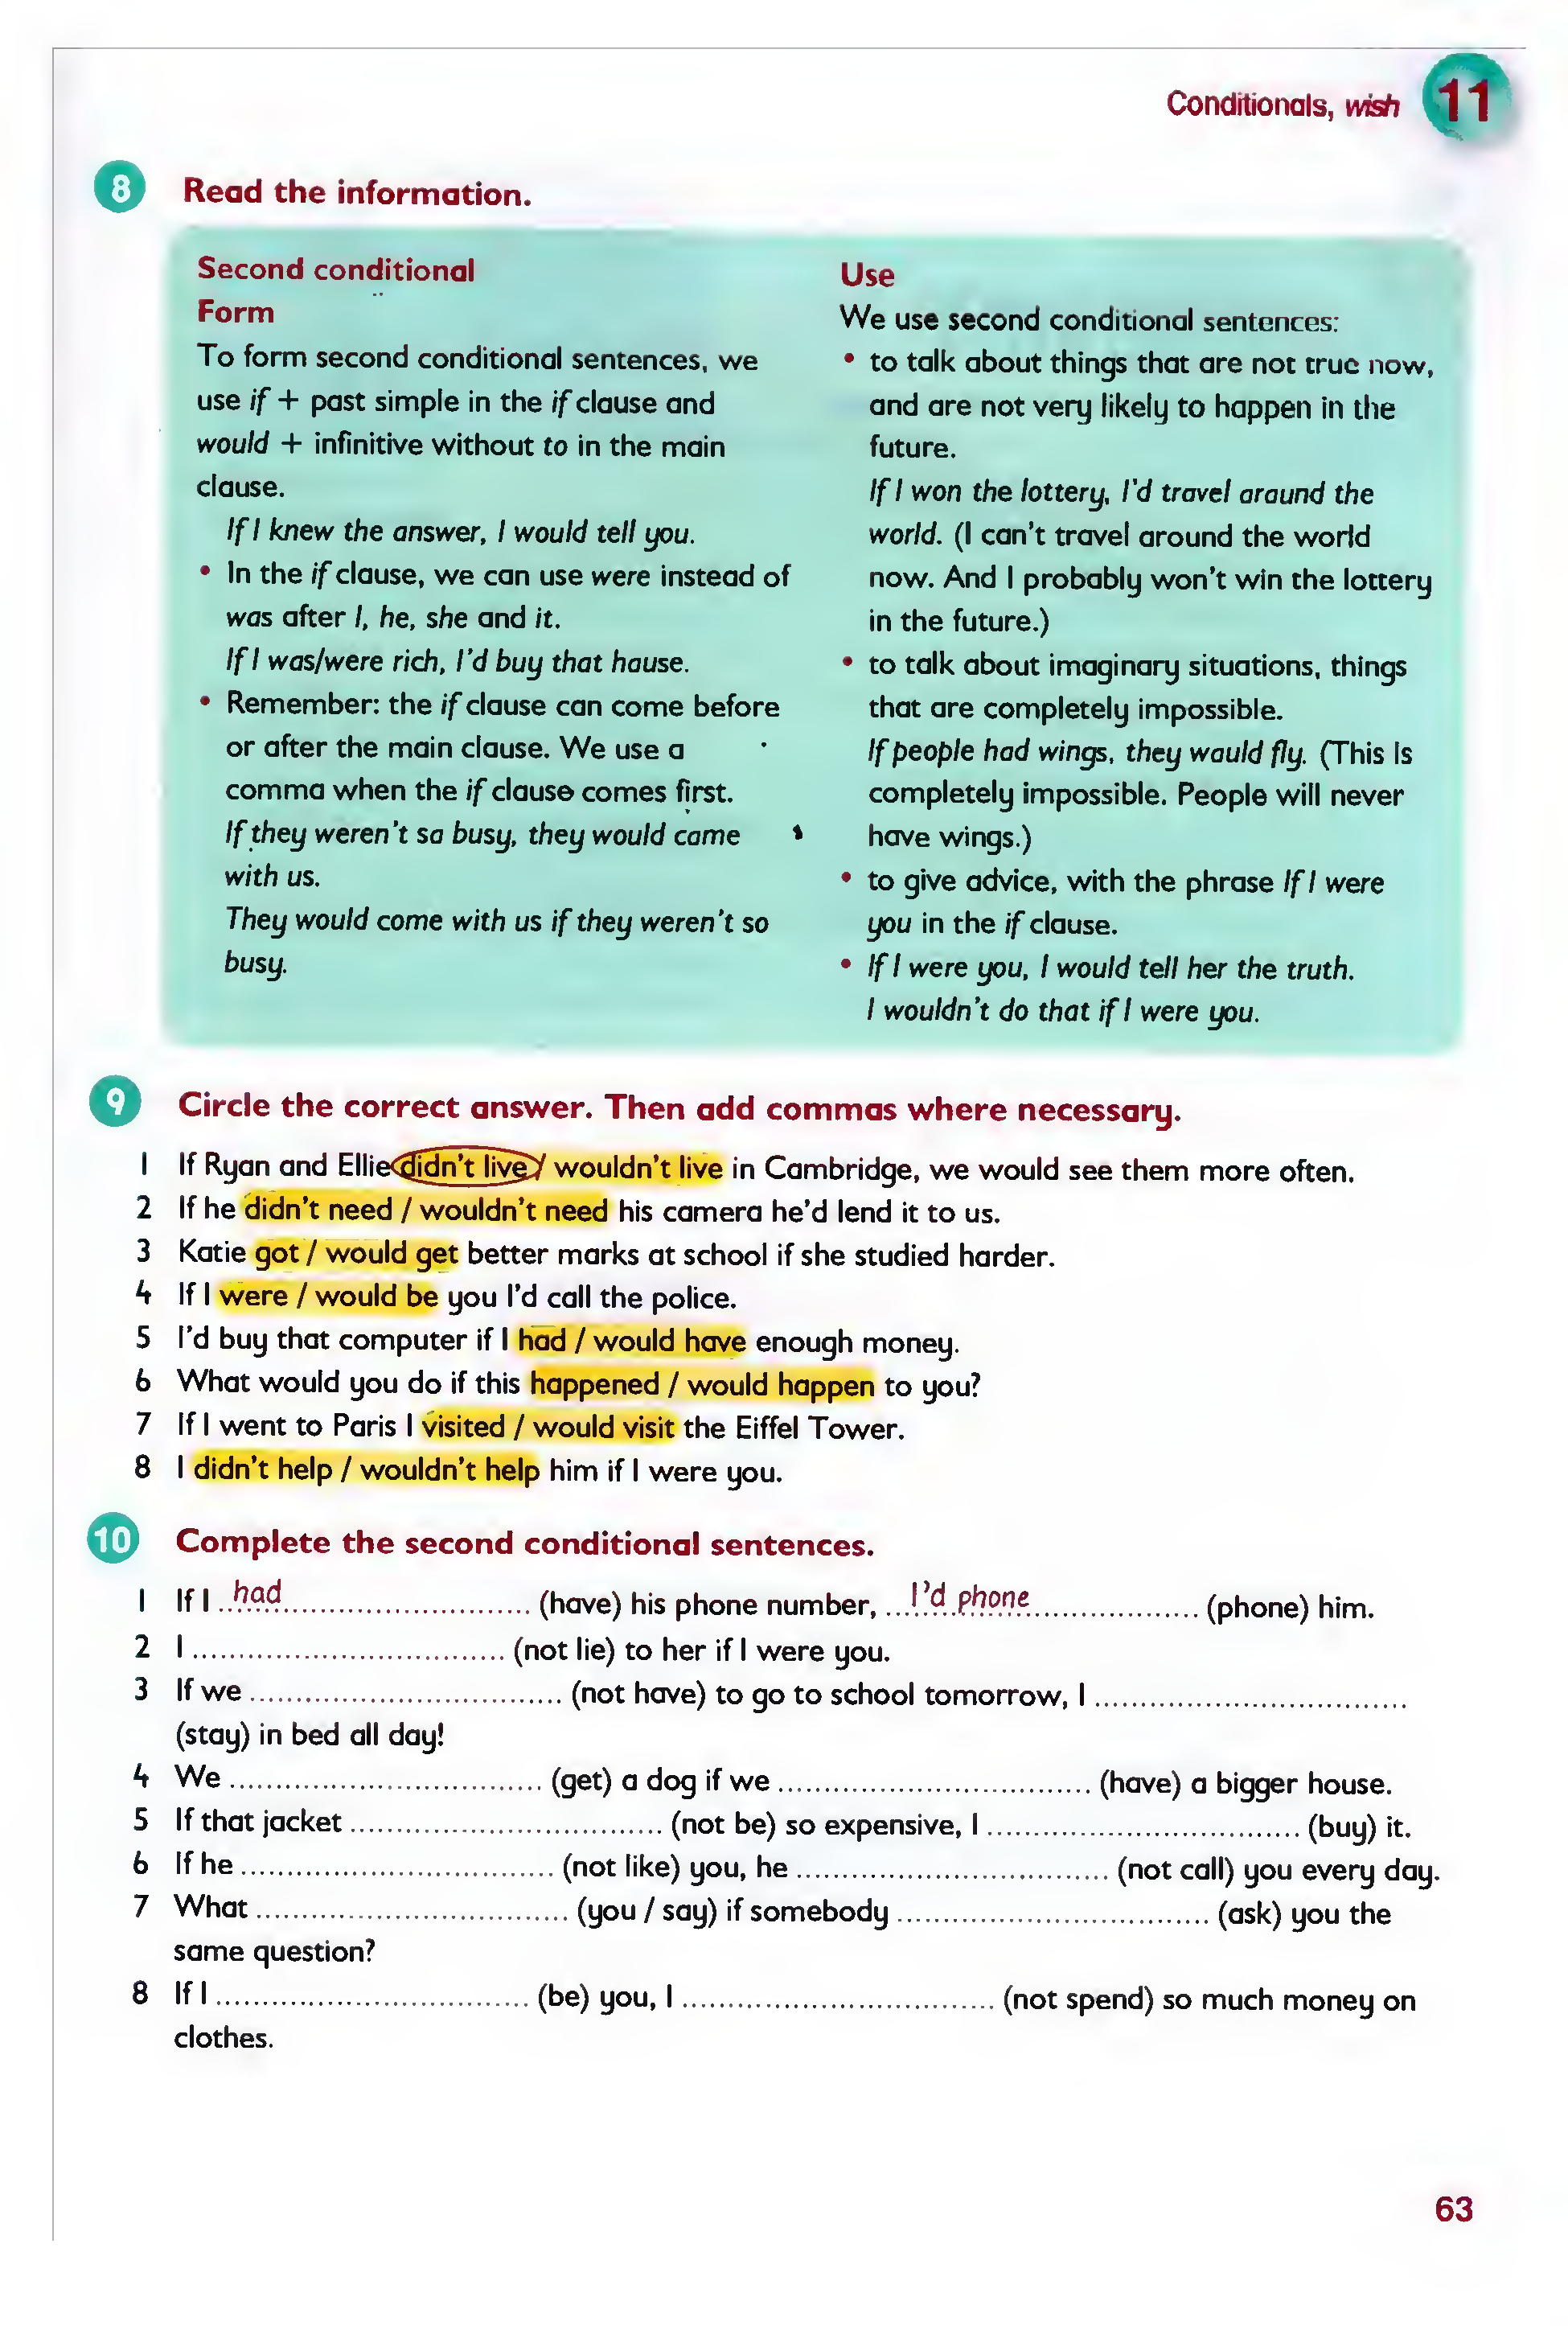 Conditionals, wish 11
8 Read the information.
Second conditional
Form
To form second conditional sentences, we
use if + past simple in the if clause and
would + infinitive without to in the main
clause.
If I knew the answer, I would tell you.
• In the if clause, we can use were instead of
was after I, he, she and it.
If I was/were rich, I'd buy that hause.
• Remember: the if clause can come before
or after the main clause. We use a
comma when the if clause comes first.
If they weren't sa busy, they would came
with us.
They would come with us if they weren't so
busy.
Use
We use second conditional sentences:
• to talk about things that are not true now,
and are not very likely to happen in the
future.
If I won the lottery, I'd travel around the
world. (I can't travel around the world
now. And I probably won't win the lottery
in the future.)
• to talk about imaginary situations, things
that are completely impossible.
If people had wings, they wauld fly. (This Is
completely impossible. People will never
have wings.)
• to give advice, with the phrase If I were
you in the if clause.
• If I were you, I would tell her the truth.
I wouldn't do that if I were you.
9 Circle the correct answer. Then add commas where necessary.
1 If Ryan and Ellie didn't live / wouldn't live in Cambridge, we would see them more often.
2 If he didn't need / wouldn't need his camera he'd lend it to us.
3 Katie got / would get better marks at school if she studied harder.
4 If I were / would be you I'd call the police.
5 I'd buy that computer if I had / would have enough money.
6 What would you do if this happened / would happen to you?
7 If I went to Paris I visited / would visit the Eiffel Tower.
8 I didn't help / wouldn't help him if I were you.
10 Complete the second conditional sentences.
1 If I had (have) his phone number, I'd phone (phone) him.
2 I .................................. (not lie) to her if I were you.
3 If we .................................. (not have) to go to school tomorrow, I ..................................
(stay) in bed all day!
4 We .................................. (get) a dog if we .................................. (have) a bigger house.
5 If that jacket .................................. (not be) so expensive, I .................................. (buy) it.
6 If he .................................. (not like) you, he .................................. (not call) you every day.
7 What .................................. (you / say) if somebody .................................. (ask) you the
same question?
8 If I .................................. (be) you, I .................................. (not spend) so much money on
clothes.
63